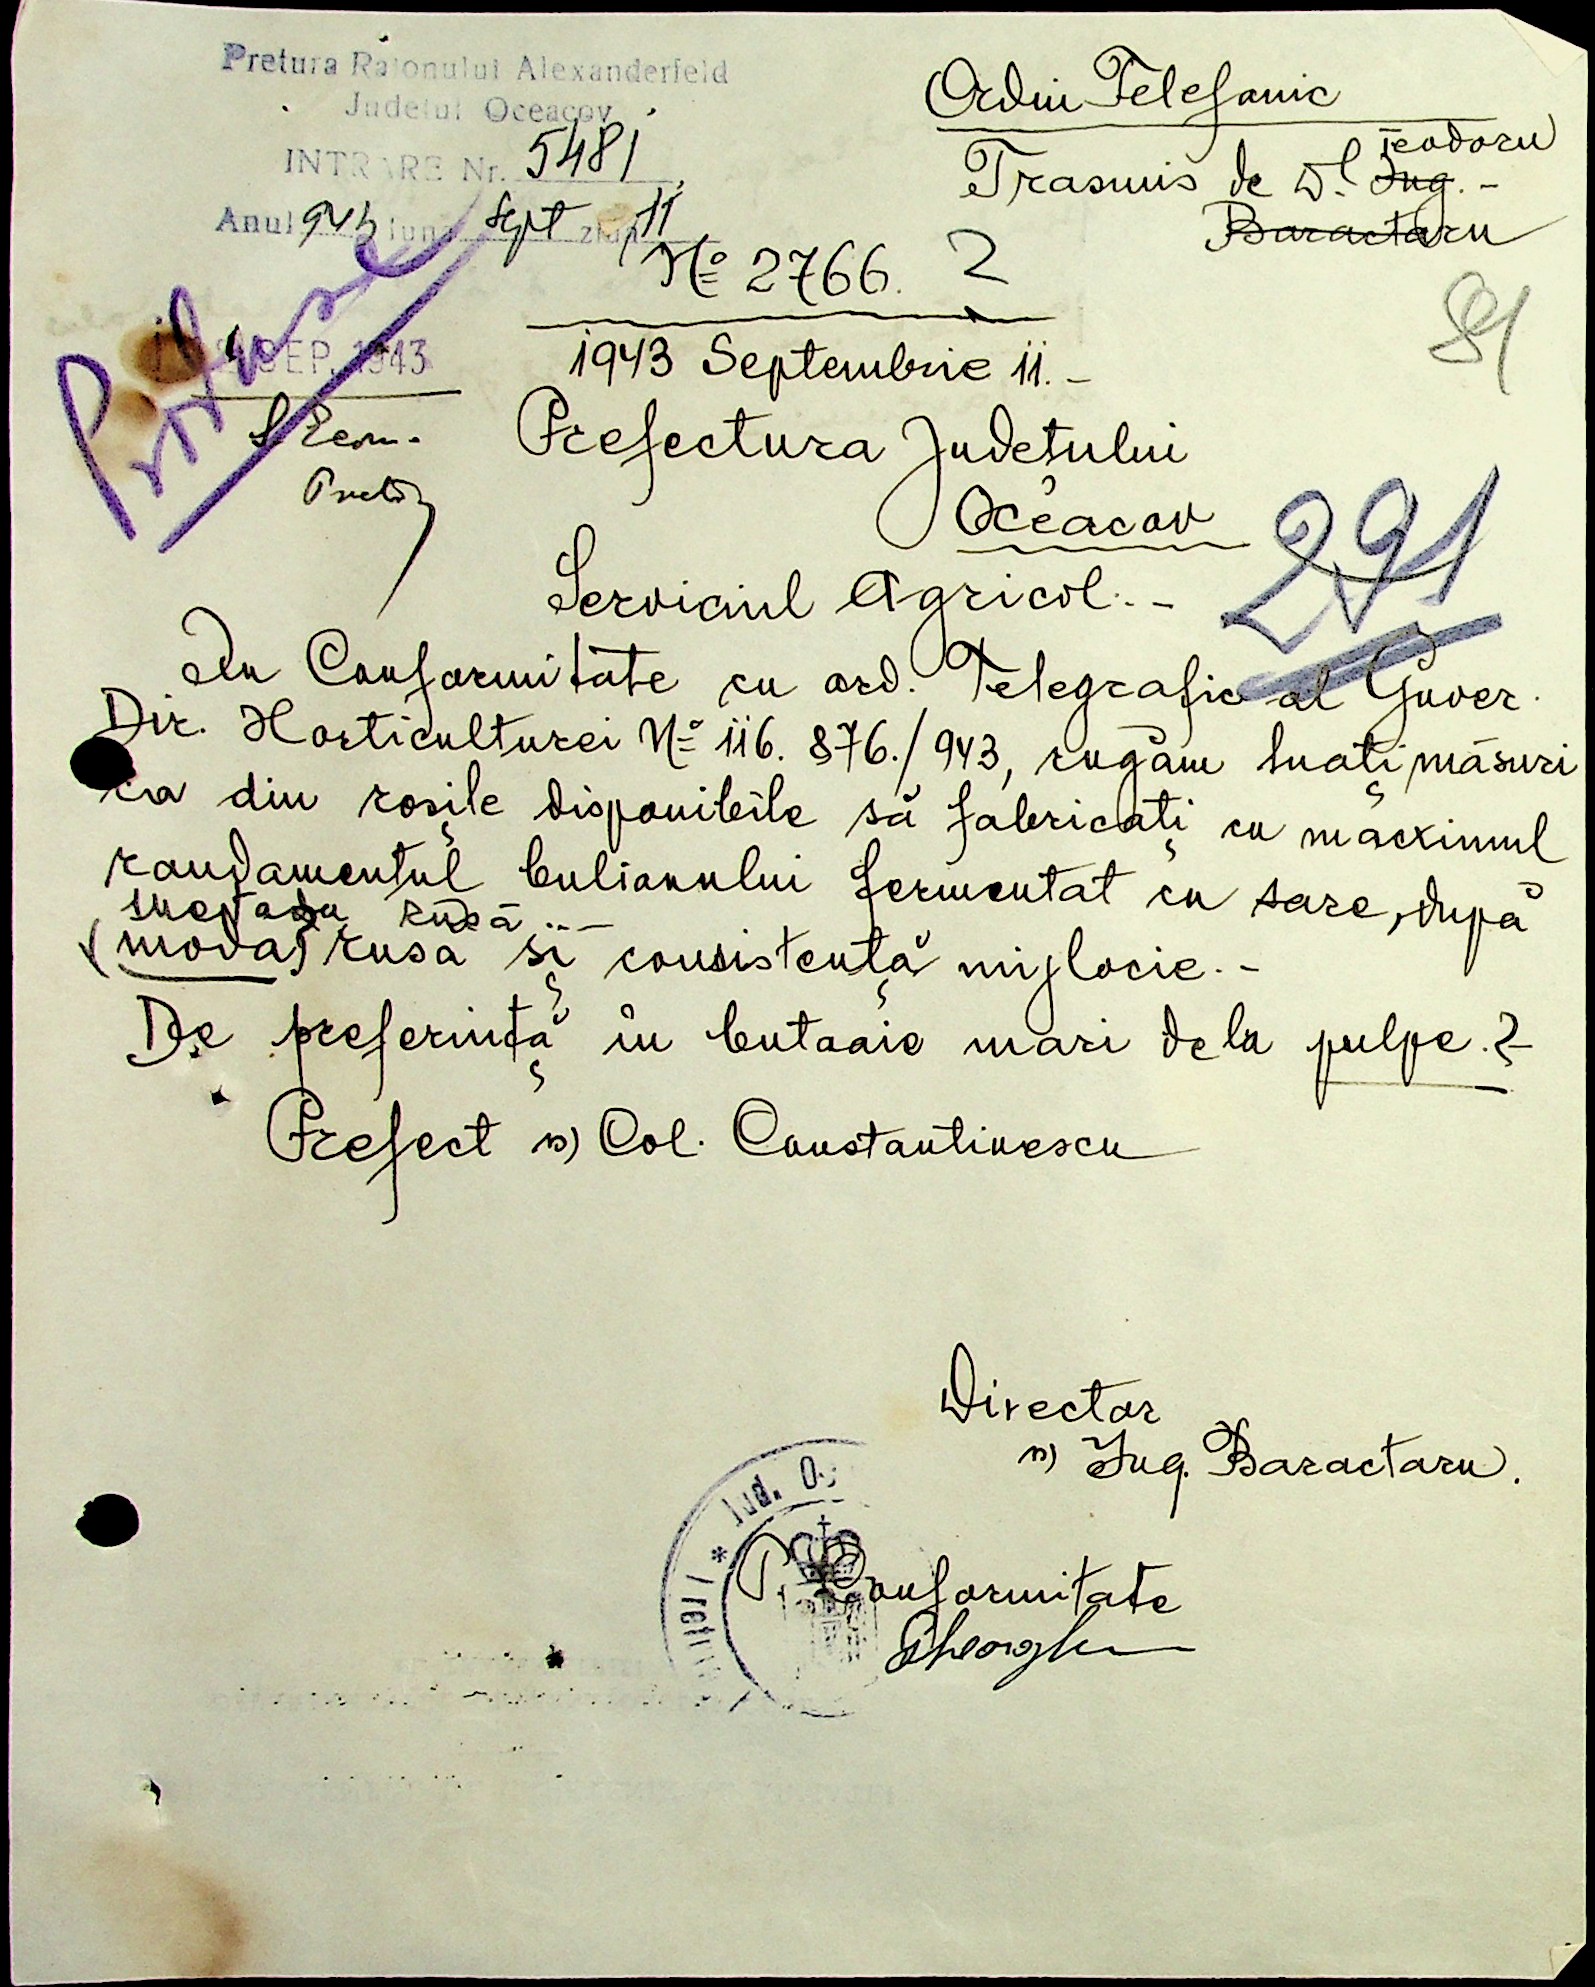 Pretura Raionului Alexanderfeld
Judetul Oceacov
INTRARE Nr. 5481
Anul 943 luna Sept ziua 11
Ordin Telefonic
Teodoru
Trasmis de D.l Ing. -
Baractaru
№ 2766. 2
81
1943 Septembrie 11. -
SEP. 1943
Prefectura Județului
Oceacov
291
Serviciul Agricol. -
In Conformitate cu ord. Telegrafic al Guver.
Dir. Horticulturei № 116. 876./943, rugăm luați măsuri
ca din roșiile disponibile să fabricați cu maximul
randamentul bulionului fermentat cu sare, după
metoda rusă
(moda) rusa și consistență mijlocie. -
De preferință în butoaie mari dela pulpe.
Prefect ss) Col. Constantinescu
Director
ss) Ing. Baractaru.
Jud. O
Pretu
P. Conformitate
Gheorghe